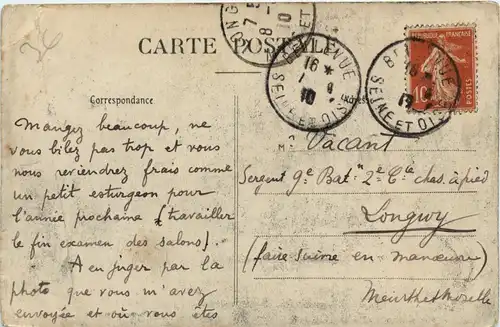 CARTE POSTALE
Correspondance
Adresse
Mangez beaucoup, ne
vous bilez pas trop et vous
nous reviendrez frais comme
un petit esturgeon pour
l'année prochaine (travailler
le fin examen des salons).
A en juger par la
photo que vous m'avez
envoyée et où vous êtes
Mr Vacant
Sergent 9e Bat.on 2e Cie chas. à pied
Longwy
(faire suivre en manœuvre)
Meurthe et Moselle
REPUBLIQUE FRANÇAISE
10
POSTES
BELLEVUE
16 *
8
10
SEINE ET OISE
BELLEVUE
SEINE ET OISE
7
8
10